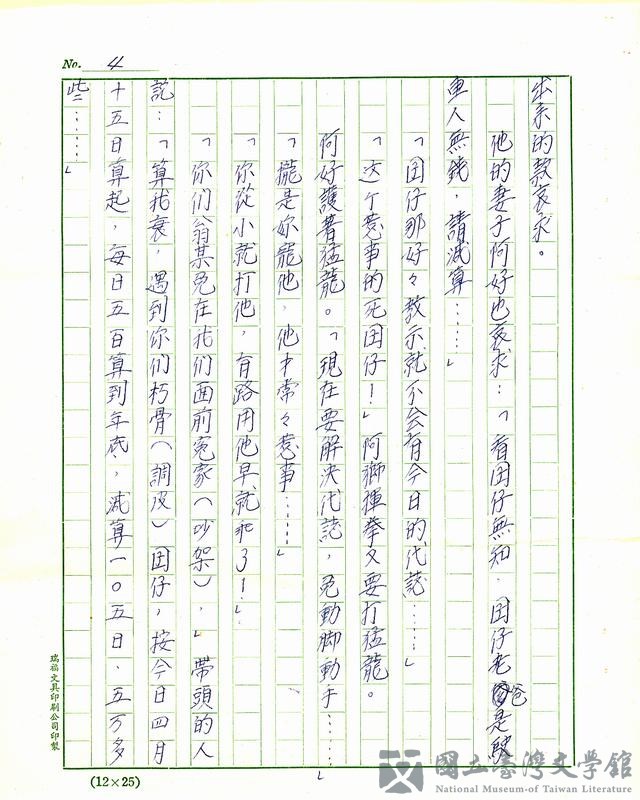 No. 4
出來的款哀求。
他的妻子阿好也哀求：「看囝仔無知．囝仔老爸是駛
魚人無銭．請減算……」
「囝仔那好々教示就不会有今日的代誌……」
「这个惹事的死囝仔！」阿獅揮拳又要打猛龍。
阿好護著猛龍。「現在要解決代誌，免動脚動手……」
「攏是妳寵他．他才常々惹事……」
「你從小就打他，有路用他早就乖了！」
「你们翁某免在我们面前冤家（吵架），」帶頭的人
說：「算我衰，遇到你们朽骨（調皮）囝仔，按今日四月
十五日算起，每日五百算到年底，減算一０五日．五万多
些……」
瑞福文具印刷公司印製
(12×25)
國立臺灣文學館
National Museum of Taiwan Literature